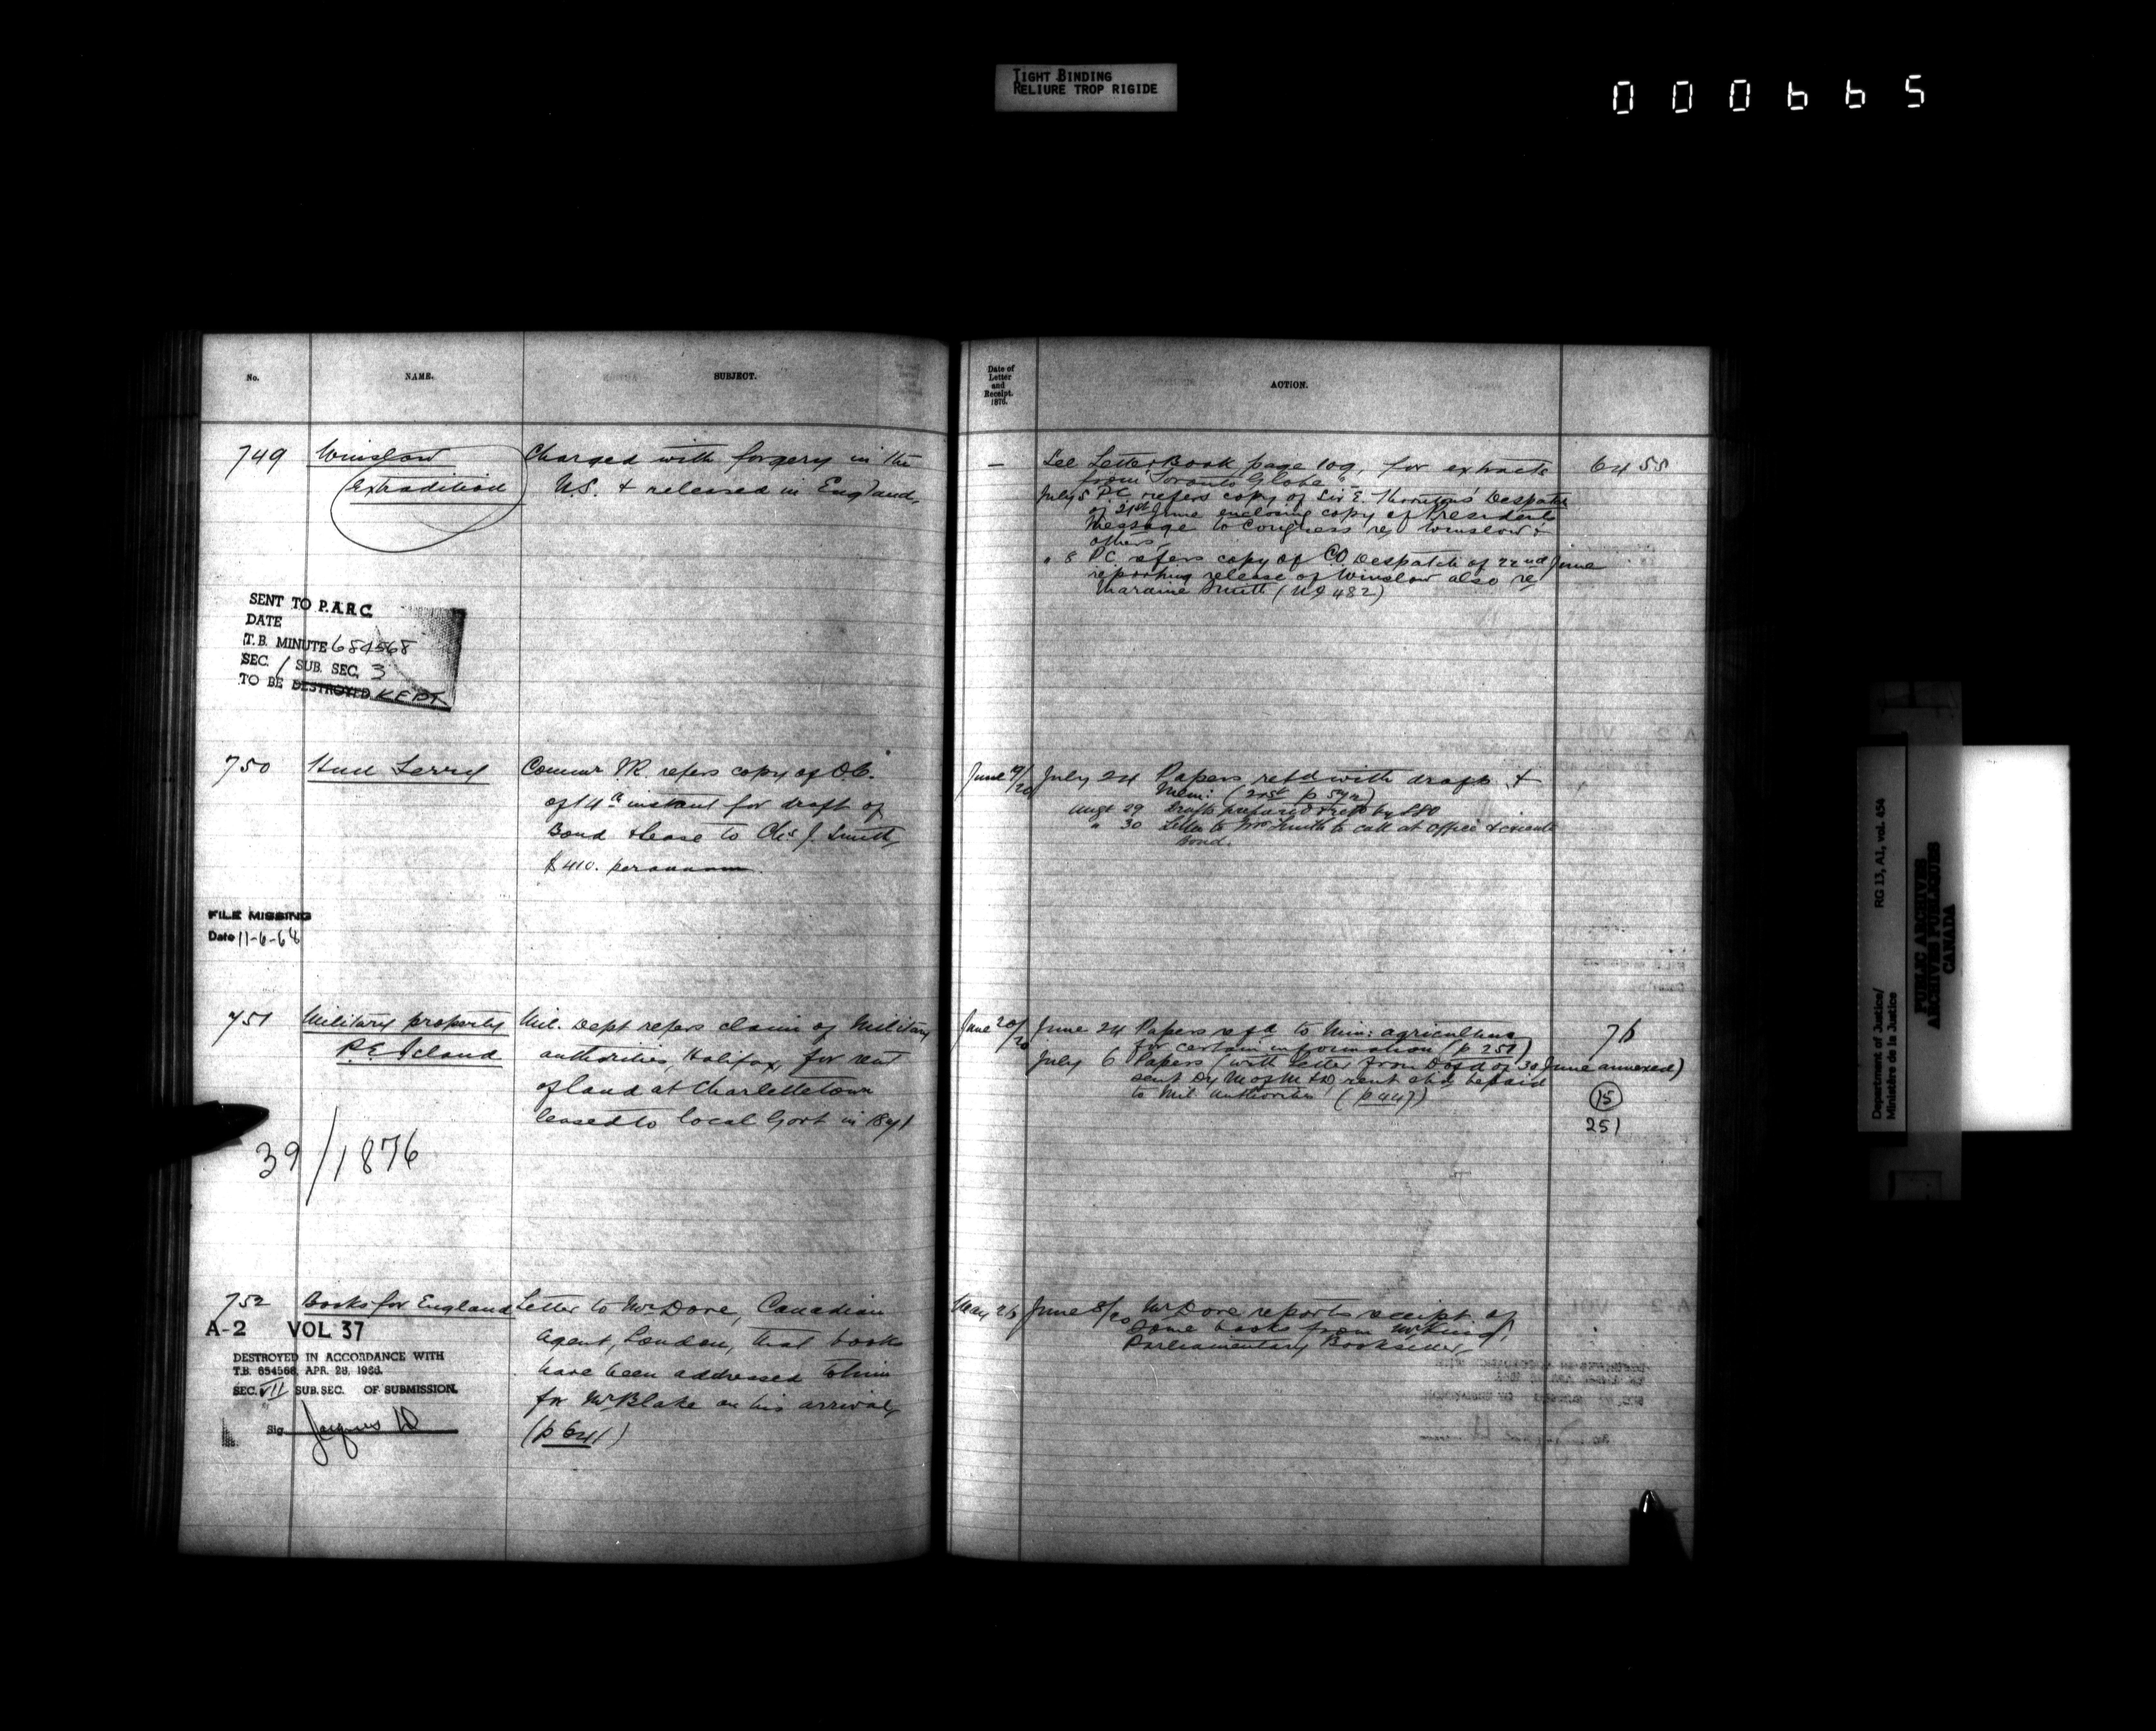 TIGHT BINDING
RELIURE TROP RIGIDE
000665
No. NAME. SUBJECT.
749 Winslow Charged with forgery in the
Extradition U.S. & released in England.
SENT TO P.A.R.C.
DATE
T.B. MINUTE 654568
SEC. / SUB. SEC. 3
TO BE DESTROYED KEPT
750 Hull Ferry Commr I.R. refers copy of O.C.
of 14th instant for draft of
Bond & lease to Chs. J. Smith,
$410. per annum.
FILE MISSING
Date 11-6-68
751 Military property Mil. Dept refers claim of Military
P.E. Island authorities, Halifax, for rent
of land at Charlottetown
leased to local Govt in 1871
39/1876
752 Books for England Letter to Mr Dore, Canadian
Agent, London, that books
have been addressed to him
for Mr Blake on his arrival,
(p 641)
A-2 VOL 37
DESTROYED IN ACCORDANCE WITH
T.B. 654568, APR. 28, 1966.
SEC. VII SUB.SEC. OF SUBMISSION.
Sig.
Date of
Letter
and
Receipt.
1876.
ACTION.
— See Letter Book page 109, for extracts 64 55
from Toronto Globe.
July 5 P.C. refers copy of Sir E. Thornton's Despatch
of 21st June enclosing copy of President's
Message to Congress re Winslow &
others.
" 8 P.C. refers copy of C.O. Despatch of 22nd June
reporting release of Winslow also re
Smith (No 482)
June 19/20 July 24 Papers retd with draft &
Mem: (
Augt 29 Drafts prepared
" 30 Letter to Mr Smith to call at Office & execute
Bond.
June 20/20 June 24 Papers refd to Min: Agriculture 76
for certain information (p 251)
July 6 Papers (with letter from D of 30 June annexed)
sent D of M rent be paid
to Mil. Authorities (p 447)
15
251
May 26 June 8/20 Mr Dore reports receipt of
some books from Mr King,
Parliamentary Bookseller,
Department of Justice/
Ministère de la Justice
RG 13, A1, vol. 454
PUBLIC ARCHIVES
ARCHIVES PUBLIQUES
CANADA